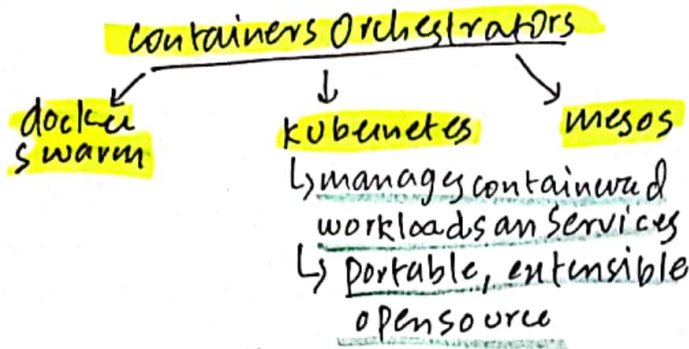 containers Orchestrators
docker
swarm
kubernetes
mesos
↳ manages containered
workloads an services
↳ portable, extensible
opensource